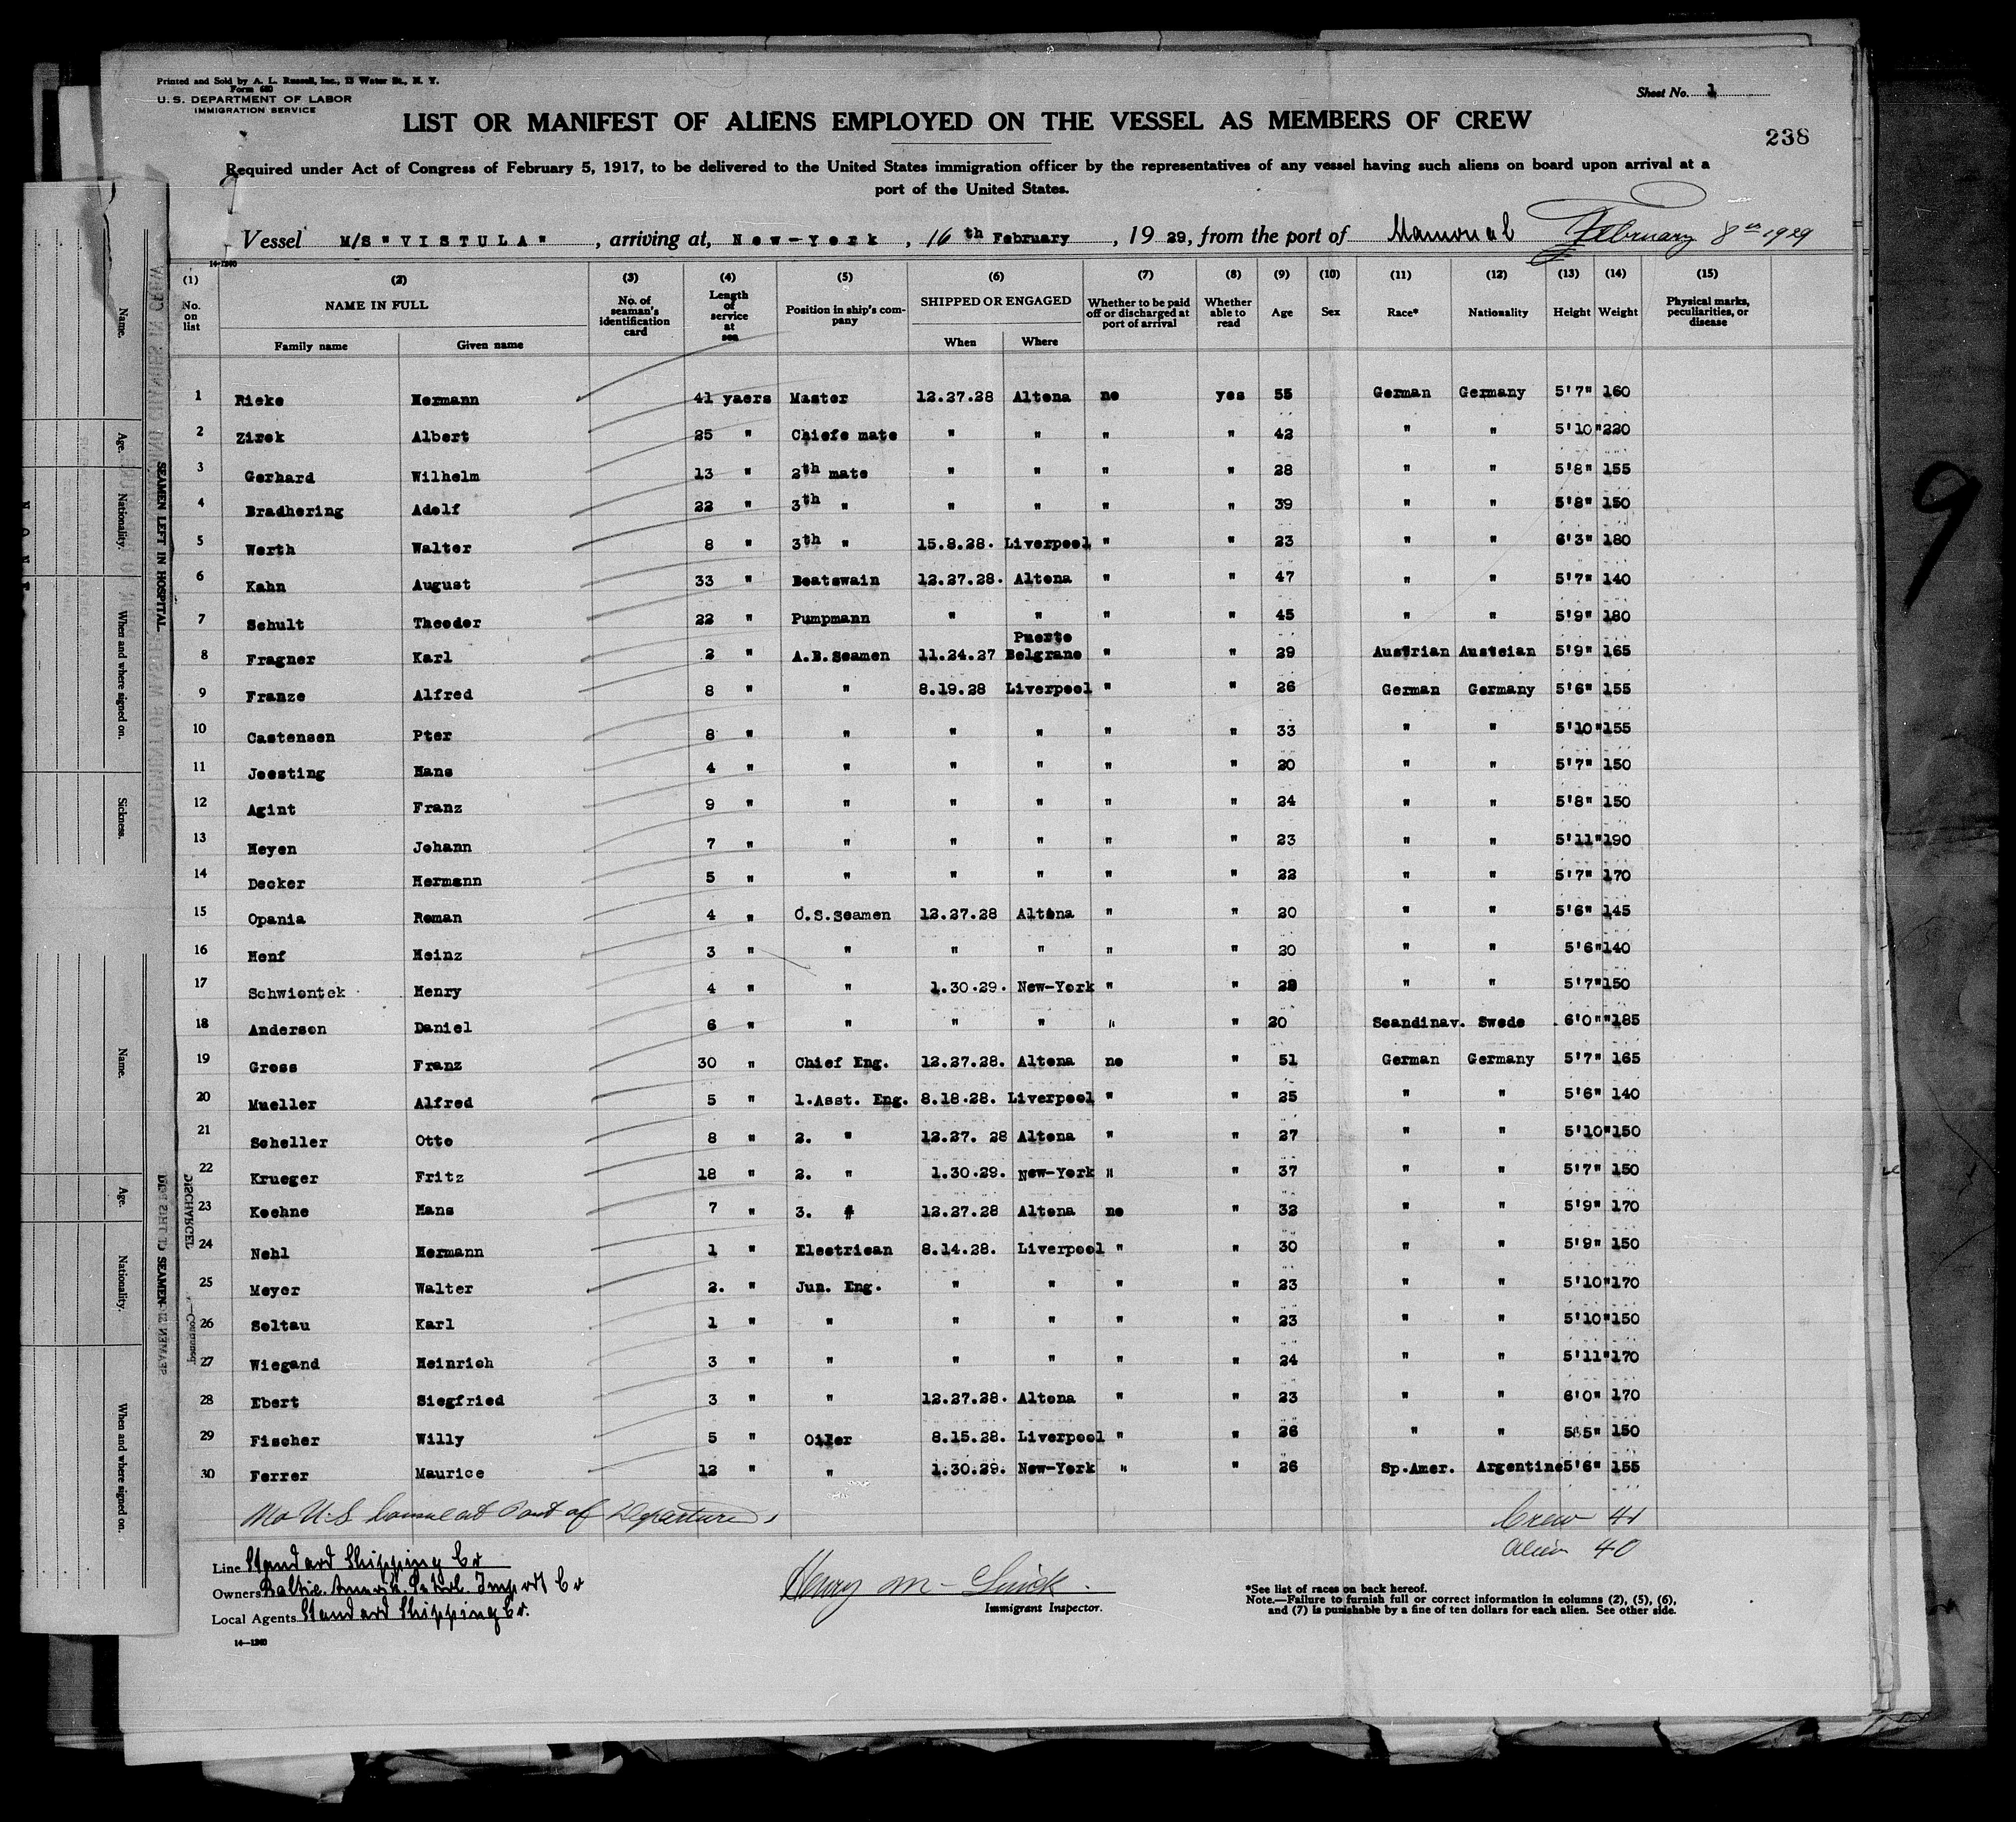 Printed and Sold by A. L. Russell, Inc., 13 Water St., N. Y.
Form 680
U. S. DEPARTMENT OF LABOR
IMMIGRATION SERVICE
Sheet No. 1
LIST OR MANIFEST OF ALIENS EMPLOYED ON THE VESSEL AS MEMBERS OF CREW
238
Required under Act of Congress of February 5, 1917, to be delivered to the United States immigration officer by the representatives of any vessel having such aliens on board upon arrival at a
port of the United States.
Vessel M/S "VISTULA" , arriving at, New-York , 16 th February , 19 29, from the port of Mamonal February 8th 1929
14-1240
(1) (2) (3) (4) (5) (6) (7) (8) (9) (10) (11) (12) (13) (14) (15)
No. on list NAME IN FULL No. of seaman's identification card Length of service at sea Position in ship's company SHIPPED OR ENGAGED Whether to be paid off or discharged at port of arrival Whether able to read Age Sex Race* Nationality Height Weight Physical marks, peculiarities, or disease
Family name Given name When Where
1 Rieke Hermann 41 yaers Master 12.27.28 Altona no yes 55 German Germany 5'7" 160
2 Zirek Albert 25 " Chiefe mate " " " " 42 " " 5'10" 220
3 Gerhard Wilhelm 13 " 2th mate " " " " 28 " " 5'8" 155
4 Bradhering Adolf 22 " 3th " " " " " 39 " " 5'8" 150
5 Werth Walter 8 " 3th " 15.8.28. Liverpool " " 23 " " 6'3" 180
6 Kahn August 33 " Boatswain 12.27.28. Altona " " 47 " " 5'7" 140
7 Schult Theodor 22 " Pumpmann " " " " 45 " " 5'9" 180
Puerto
8 Fragner Karl 2 " A.B.Seamen 11.24.27 Belgrano " " 29 Austrian Austeian 5'9" 165
9 Franze Alfred 8 " " 8.19.28 Liverpool " " 26 German Germany 5'6" 155
10 Castensen Pter 8 " " " " " " 33 " " 5'10" 155
11 Joosting Hans 4 " " " " " " 20 " " 5'7" 150
12 Agint Franz 9 " " " " " " 24 " " 5'8" 150
13 Heyen Johann 7 " " " " " " 23 " " 5'11" 190
14 Decker Hermann 5 " " " " " " 22 " " 5'7" 170
15 Opania Roman 4 " O.S.Seamen 12.27.28 Altona " " 20 " " 5'6" 145
16 Henf Heinz 3 " " " " " " 20 " " 5'6" 140
17 Schwiontek Henry 4 " " 1.30.29. New-York " " 28 " " 5'7" 150
18 Anderson Daniel 6 " " " " " " 20 Scandinav. Swede 6'0"" 185
19 Gross Franz 30 " Chief Eng. 12.27.28. Altona no " 51 German Germany 5'7" 165
20 Mueller Alfred 5 " 1.Asst. Eng. 8.18.28. Liverpool " " 25 " " 5'6" 140
21 Scheller Otto 8 " 2. " 12.27. 28 Altona " " 27 " " 5'10" 150
22 Krueger Fritz 18 " 2. " 1.30.29. New-York " " 37 " " 5'7" 150
23 Koehne Hans 7 " 3. " 12.27.28 Altona no " 32 " " 5'9" 170
24 Nohl Hermann 1 " Electrican 8.14.28. Liverpool " " 30 " " 5'9" 150
25 Meyer Walter 2. " Jun. Eng. " " " " 23 " " 5'10" 170
26 Soltau Karl 1 " " " " " " 23 " " 5'10" 150
27 Wiegand Heinrich 3 " " " " " " 24 " " 5'11" 170
28 Ebert Siegfried 3 " " 12.27.28. Altona " " 23 " " 6'0" 170
29 Fischer Willy 5 " Oiler 8.15.28. Liverpool " " 26 " " 5'5" 150
30 Ferrer Maurice 12 " " 1.30.29. New-York " " 26 Sp.Amer. Argentine 5'6" 155
No U.S. Consul at Port of Departure.
Crew 41
Alien 40
Line Standard Shipping Co
Owners Baltic. Amerik. Petrol. Import Co
Local Agents Standard Shipping Co.
14-1240
Henry M-
Immigrant Inspector.
*See list of races on back hereof.
Note.—Failure to furnish full or correct information in columns (2), (5), (6),
and (7) is punishable by a fine of ten dollars for each alien. See other side.
9
Name.
Age.
Nationality.
When and where signed on.
Sickness.
SEAMEN LEFT IN HOSPITAL.
Name.
Age.
Nationality.
When and where signed on.
SEAMEN